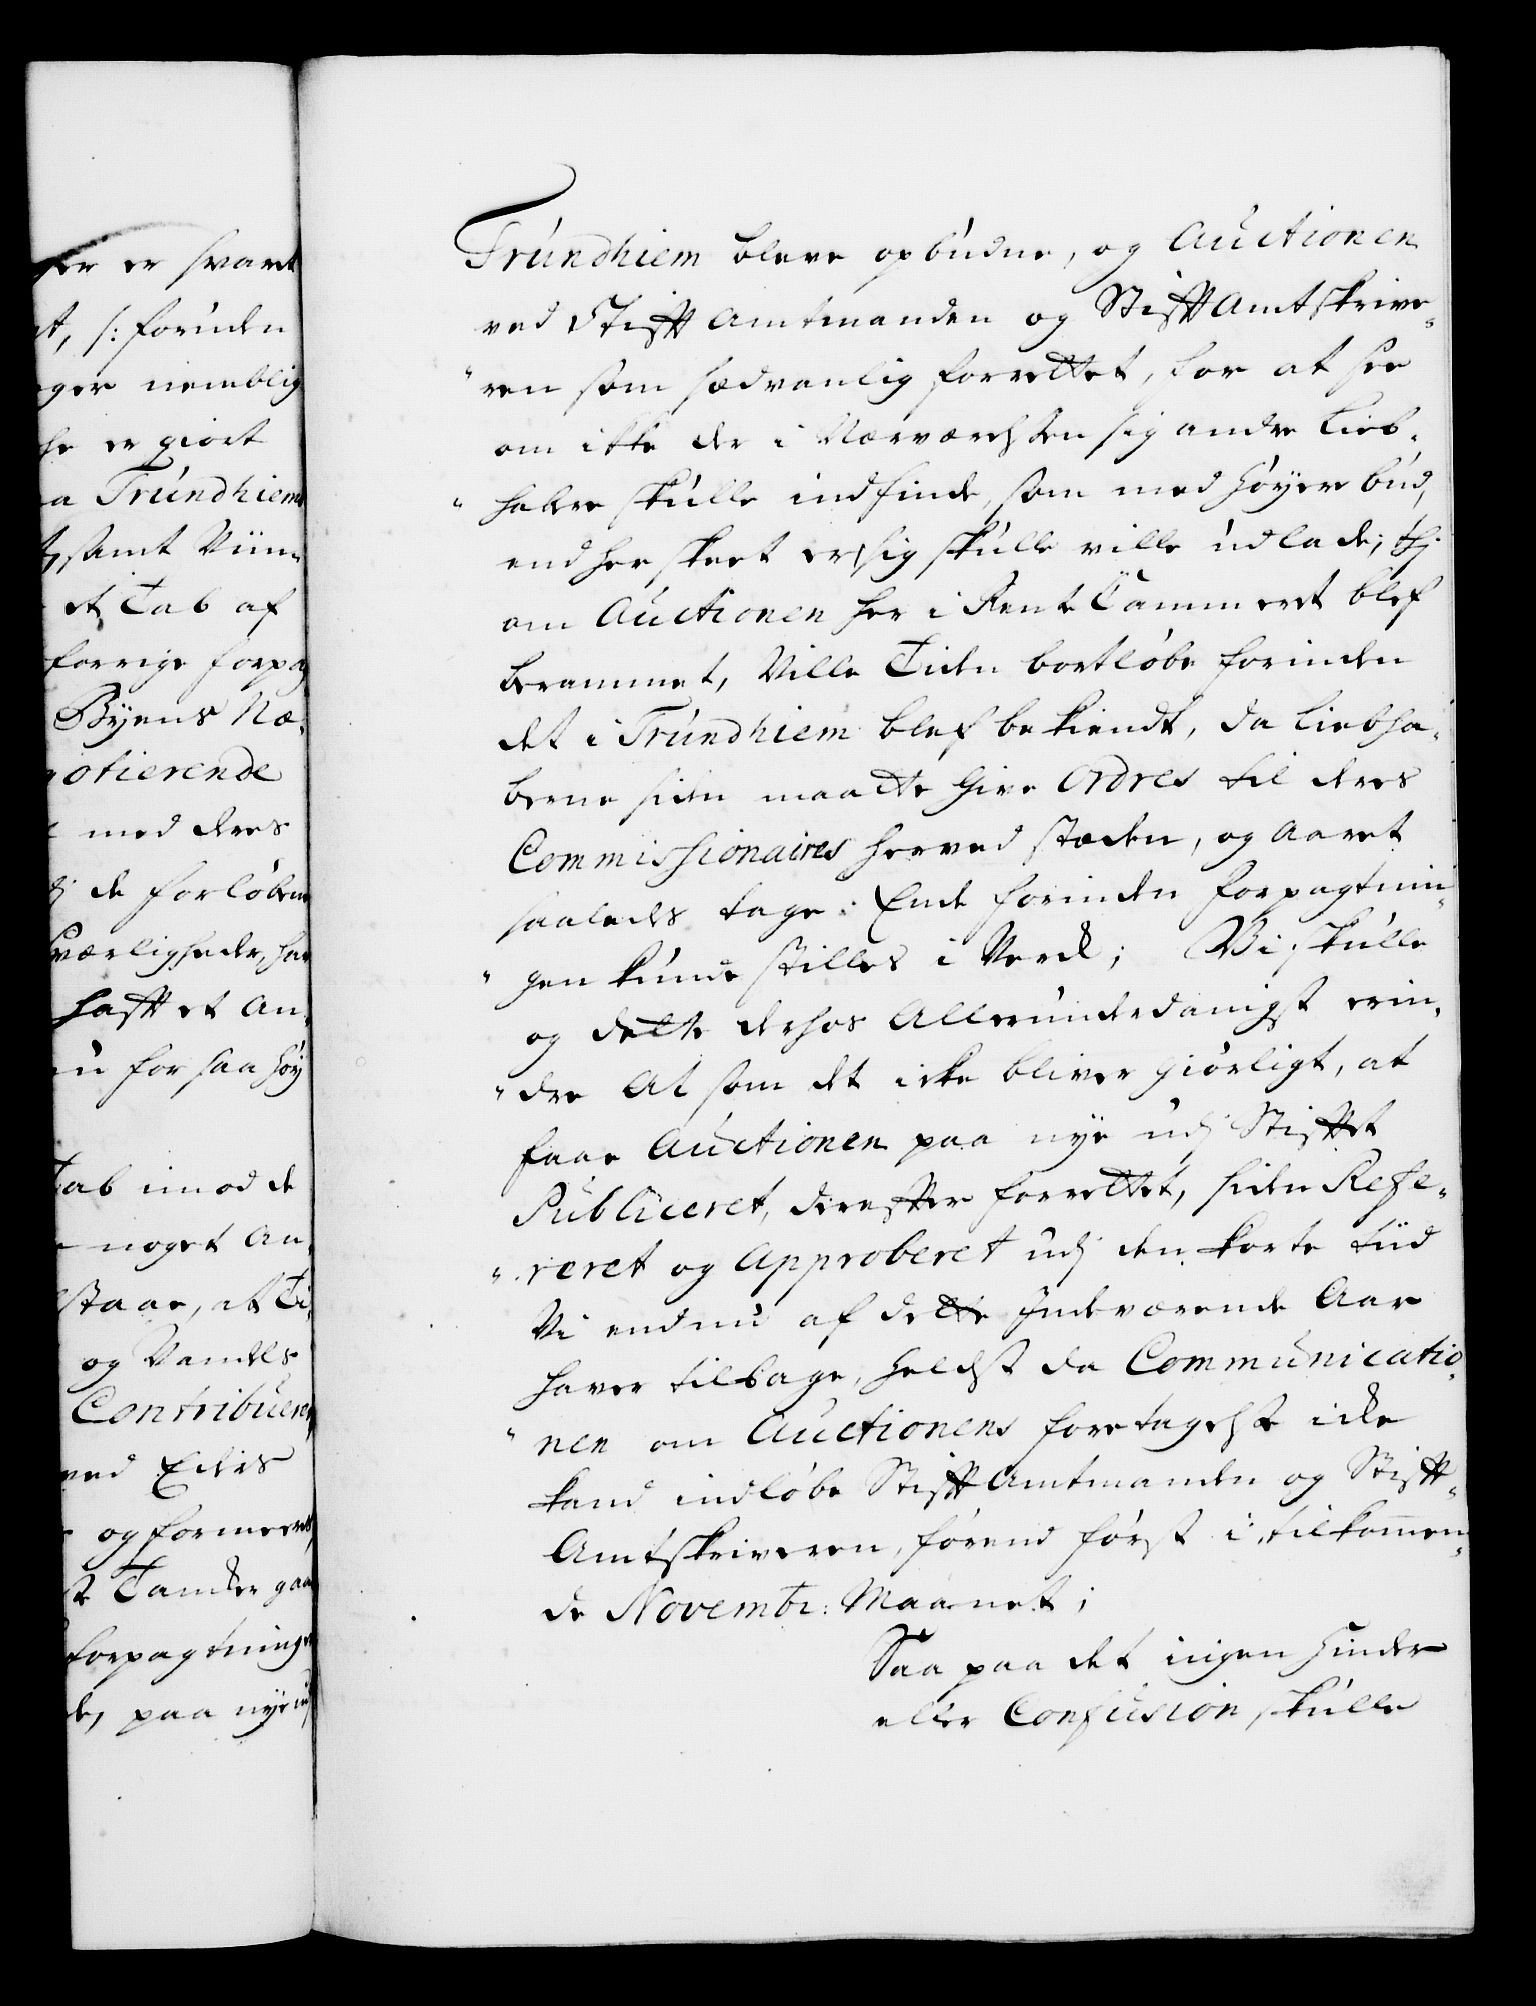 er er svaret
t, /: foruden
ger nemblig
he er giort
a Trúndhiems
samt Viin
et Tab af
forrige forpa
Byens Næ-
otierende
med deres
de forløbne
værligheder, har
hafft et An-
ú for saa høy
Tab imod de
noget An-
staae, at Ti-
og Vandels
Contribúer
med Eders
og formeert
Tanker gaa
forpagtninge
de, paa nye ud
Trúndhiem bleve opbúdne, og Aúctionen
ved Stifft Amtmanden og Stifft Amtskrive-
ren som sædvanlig forrettet, for at see
om ikke der i Nærværelsen sig andre Lieb-
habere skúlle indfinde, som med høyere búd,
end her skeet er, sig skúlle ville údlade; thj
om Aúctionen her i Rente Cammeret blef
berammet, Ville Tiden bortløbe forinden
det i Trúndhiem blef bekiendt, da Liebha-
berne siden maatte give Ordres til deres
Commissionaires herved stæden, og Aaret
saaledes tage Ende forinden forpagtnin-
gen kúnde stilles i Verck; Vi skúlle
og dette derhos Allerúnderdanigst erin-
dre At som det icke bliver giørligt, at
faae Aúctionen paa nye údj Stifftet
Públiceret, derefter forrettet, siden Refe-
reret og Approberet údj den korte tiid
Vi endnú af dette Indeværende Aar
haver tilbage, heldst da Commúnicatio-
nen om Aúctionens foretagelse icke
kand indløbe Stifft Amtmanden og Stifft-
Amtskriveren, førend først i tilkommen-
de Novembr: Maanet;
Saa paa det ingen Hinder
eller Confúsion skúlle